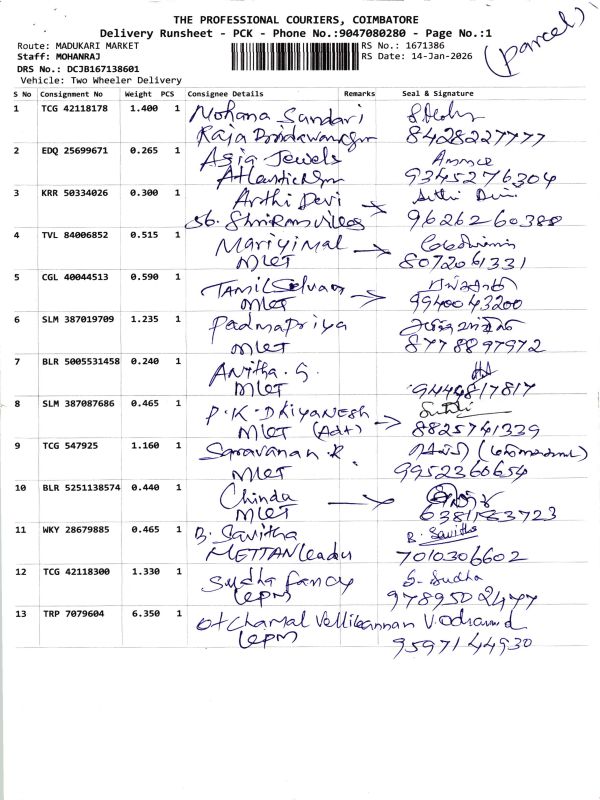 THE PROFESSIONAL COURIERS, COIMBATORE
Delivery Runsheet - PCK - Phone No.:9047080280 - Page No.:1
(parcel)
Route: MADUKARI MARKET
RS No.: 1671386
Staff: MOHANRAJ
RS Date: 14-Jan-2026
DRS No.: DCJB167138601
Vehicle: Two Wheeler Delivery
S No Consignment No Weight PCS Consignee Details Remarks Seal & Signature
1 TCG 42118178 1.400 1 Mohana Sundari
Raja 8428227777
2 EDQ 25699671 0.265 1 Asia Jewels
Atlantic 9345276304
3 KRR 50334026 0.300 1 Arthi Devi
56. Shriram Villas 9626260388
4 TVL 84006852 0.515 1 Mariyimal
MLET 8072061331
5 CGL 40044513 0.590 1 Tamil Selvam
MLET 9940043200
6 SLM 387019709 1.235 1 Padmapriya
MLET 8778897972
7 BLR 5005531458 0.240 1 Anitha. G.
MLET 9444817817
8 SLM 387087686 0.465 1 P.K. Dhiyanesh
MLET (Adt) 8825741339
9 TCG 547925 1.160 1 Saravanan R
MLET 9952360654
10 BLR 5251138574 0.440 1 Chinda
MLET 6381183723
11 WKY 28679885 0.465 1 B. Savitha B. Savitha
METTAN Leader 7010306602
12 TCG 42118300 1.330 1 Sudha Fancy S. Sudha
LEPM 9789502477
13 TRP 7079604 6.350 1 Vellikannan
LEPM 9597144930